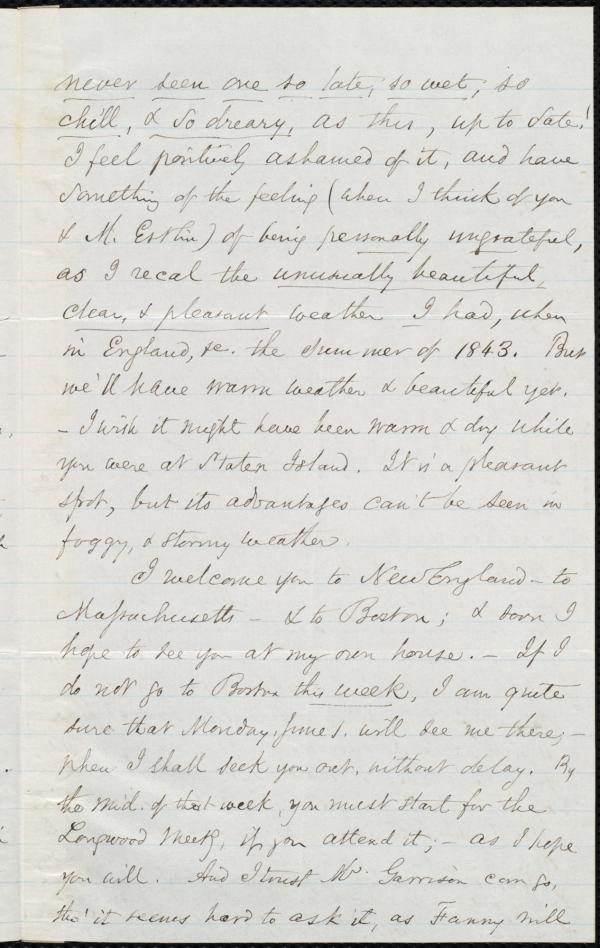 never seen one so late, so wet, so
chill, & so dreary, as this, up to date!
I feel positively ashamed of it, and have
something of the feeling (when I think of you
& M. Esthin) of being personally ungrateful,
as I recal the unusually beautiful,
clear, & pleasant weather I had, when
in England, &c. the summer of 1843. But
we'll have warm weather & beautiful yet.
- I wish it might have been warm & dry while
you were at Staten Island. It is a pleasant
spot, but its advantages can't be seen in
foggy, & stormy weather.
I welcome you to New England - to
Massachusetts - & to Boston; & soon I
hope to see you at my own house. - If I
do not go to Boston this week, I am quite
sure that Monday, June 1. will see me there; -
when I shall seek you out, without delay. By
the mid. of that week, you must start for the
Longwood Meetg, if you attend it; - as I hope
you will. And I trust Mr. Garrison can go,
tho' it seems hard to ask it, as Fanny will